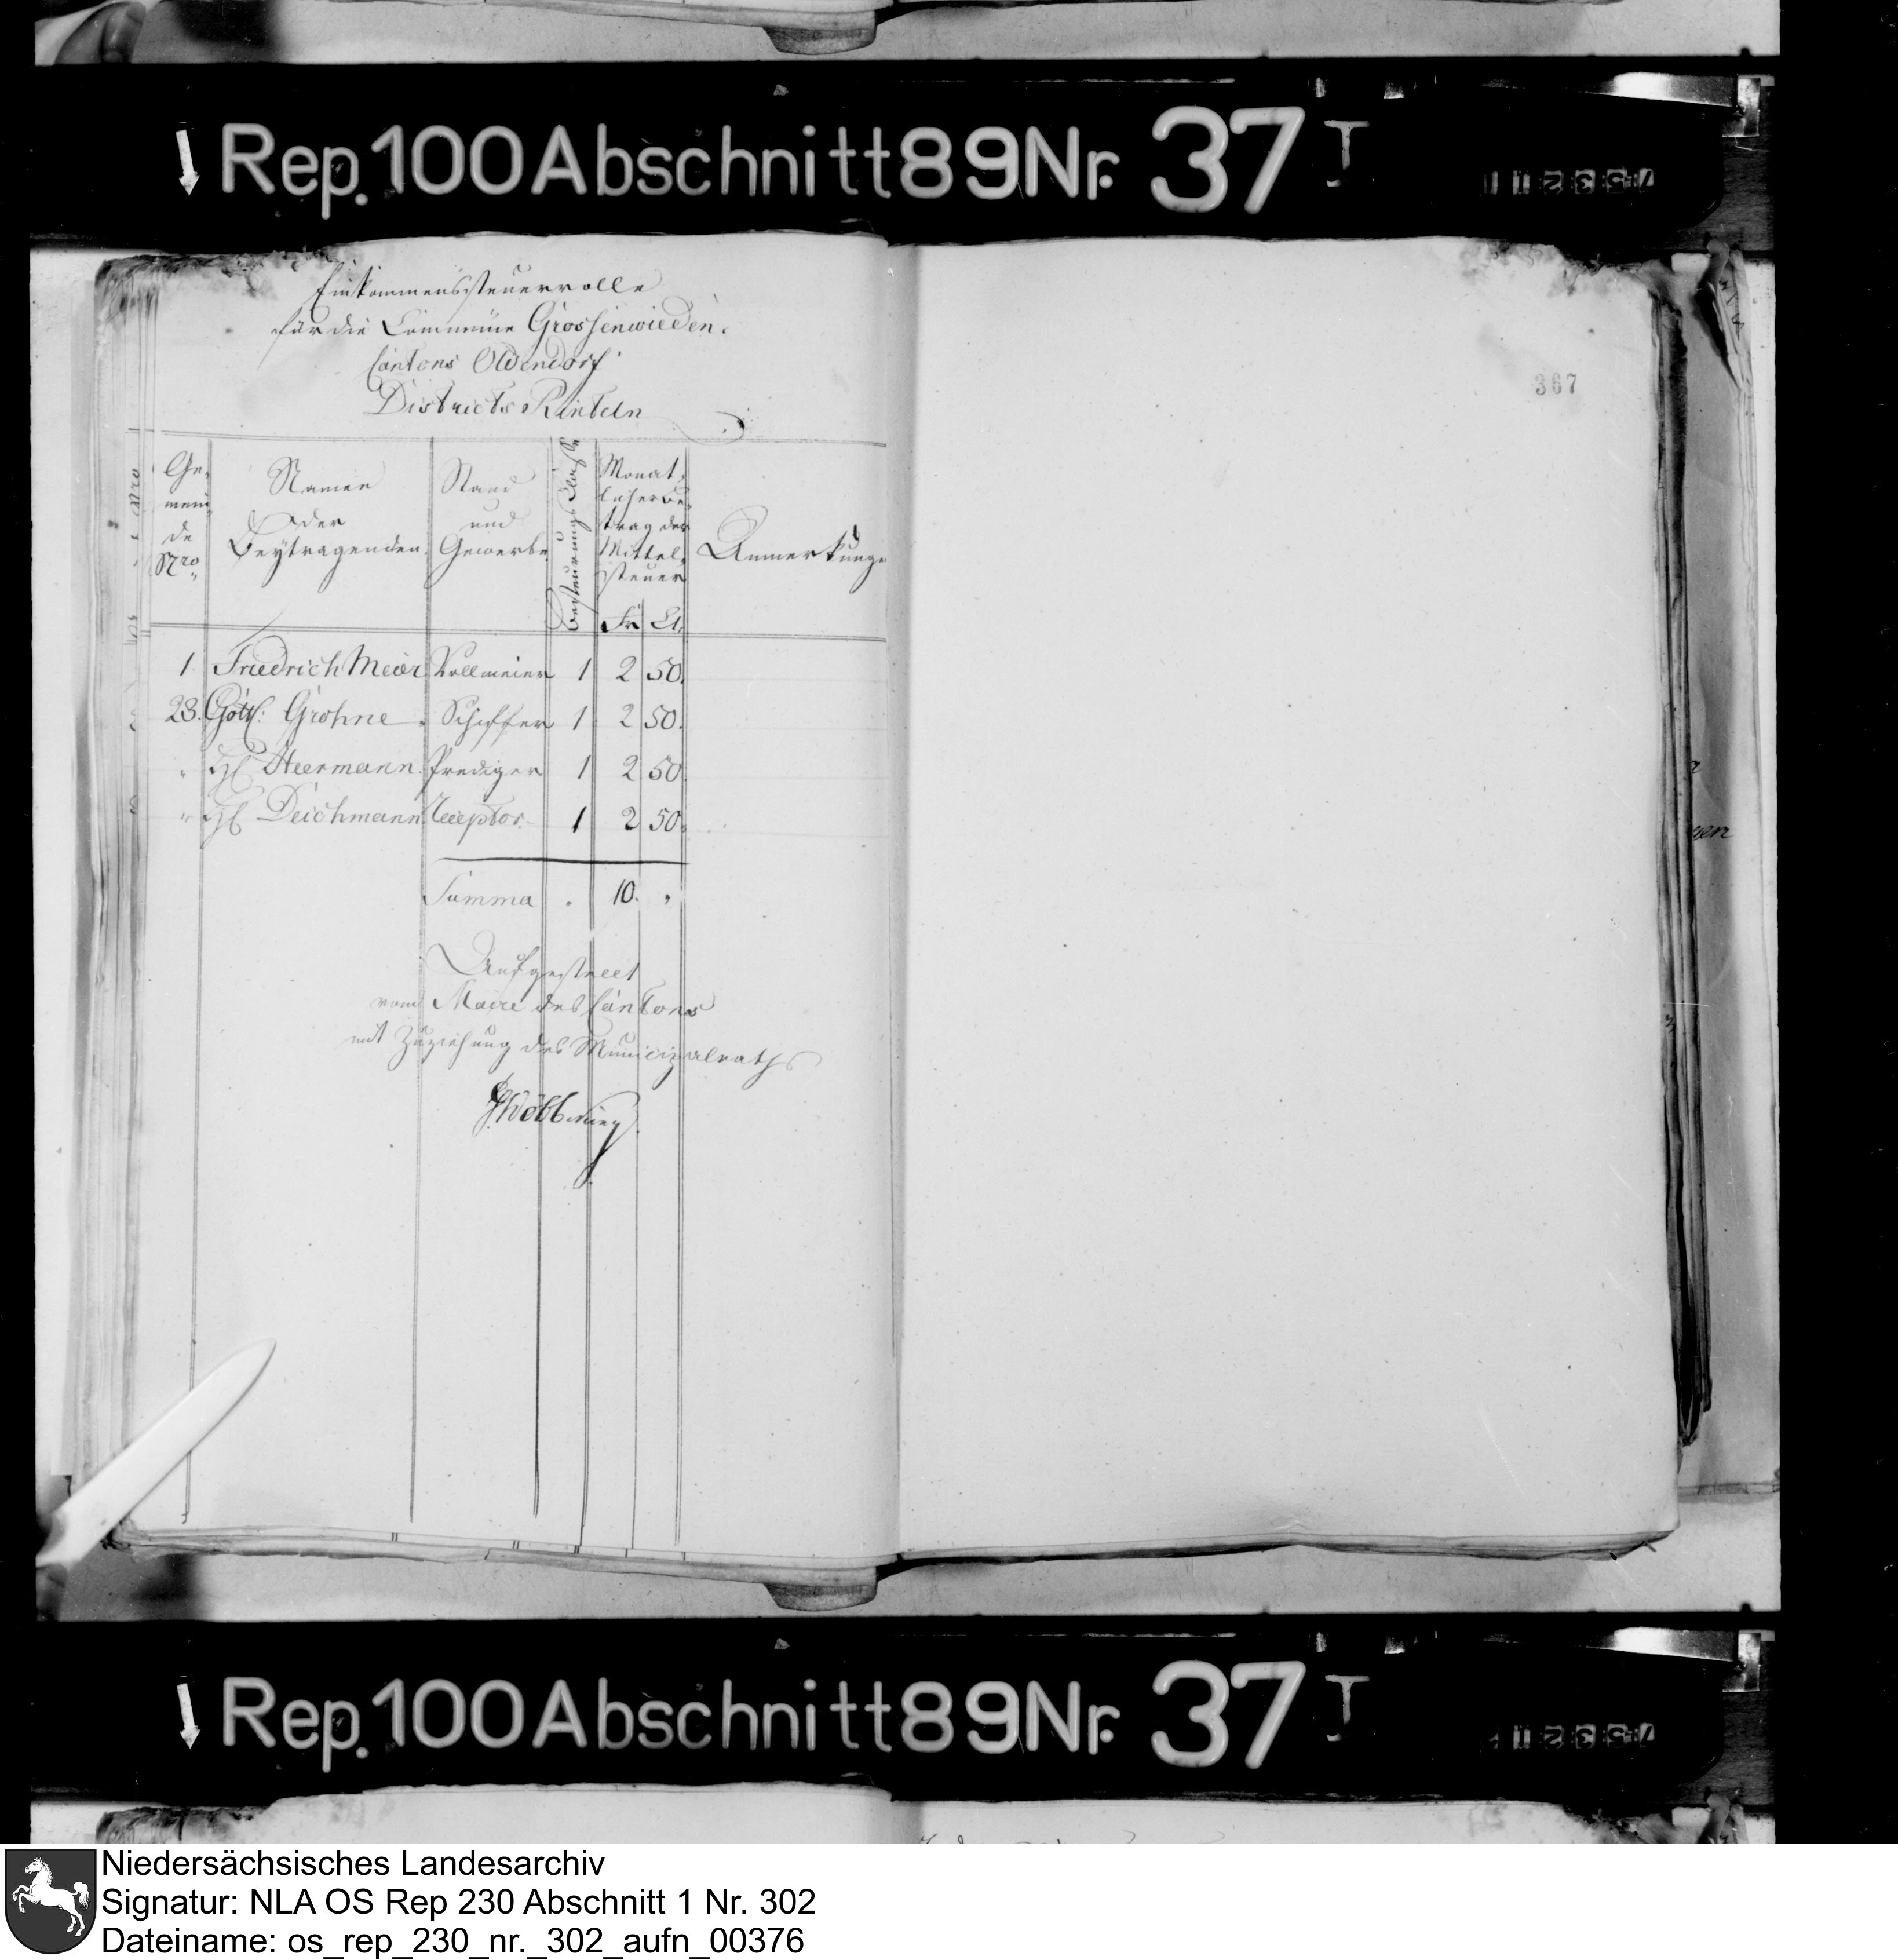 Rep. 100 Abschnitt 89 Nr. 37 I
Einkommenssteuerrolle
für die Commüne Grossenwieden.
Cantons Oldendorf
Districts Rinteln
367
Ge-
mein-
de
Nro.
Namen
der
Beytragenden.
Stand
und
Gewerbe
Besteurungs Classe
Monat-
licher Be-
trag der
Mittel-
steuer
Fr. Ct.
Anmerkunge
1. Friedrich Meier Vollmeier 1 2 50.
23. Gottl: Grohne Schiffer 1 2 50.
" H. Heermann Prediger 1 2 50.
" H. Deichmann Receptor. 1 2 50.
Summa . 10. "
Aufgestellt
vom Maire des Cantons
mit Zuziehung des Municipalraths
Rep. 100 Abschnitt 89 Nr. 37 I
Niedersächsisches Landesarchiv
Signatur: NLA OS Rep 230 Abschnitt 1 Nr. 302
Dateiname: os_rep_230_nr._302_aufn_00376